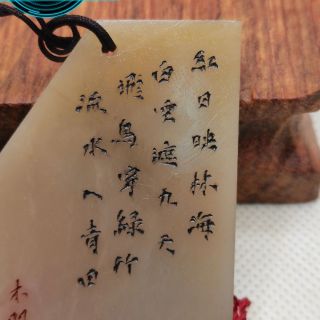 紅日映林海
白雲遮九天
飛鳥穿綠竹
流水入青田